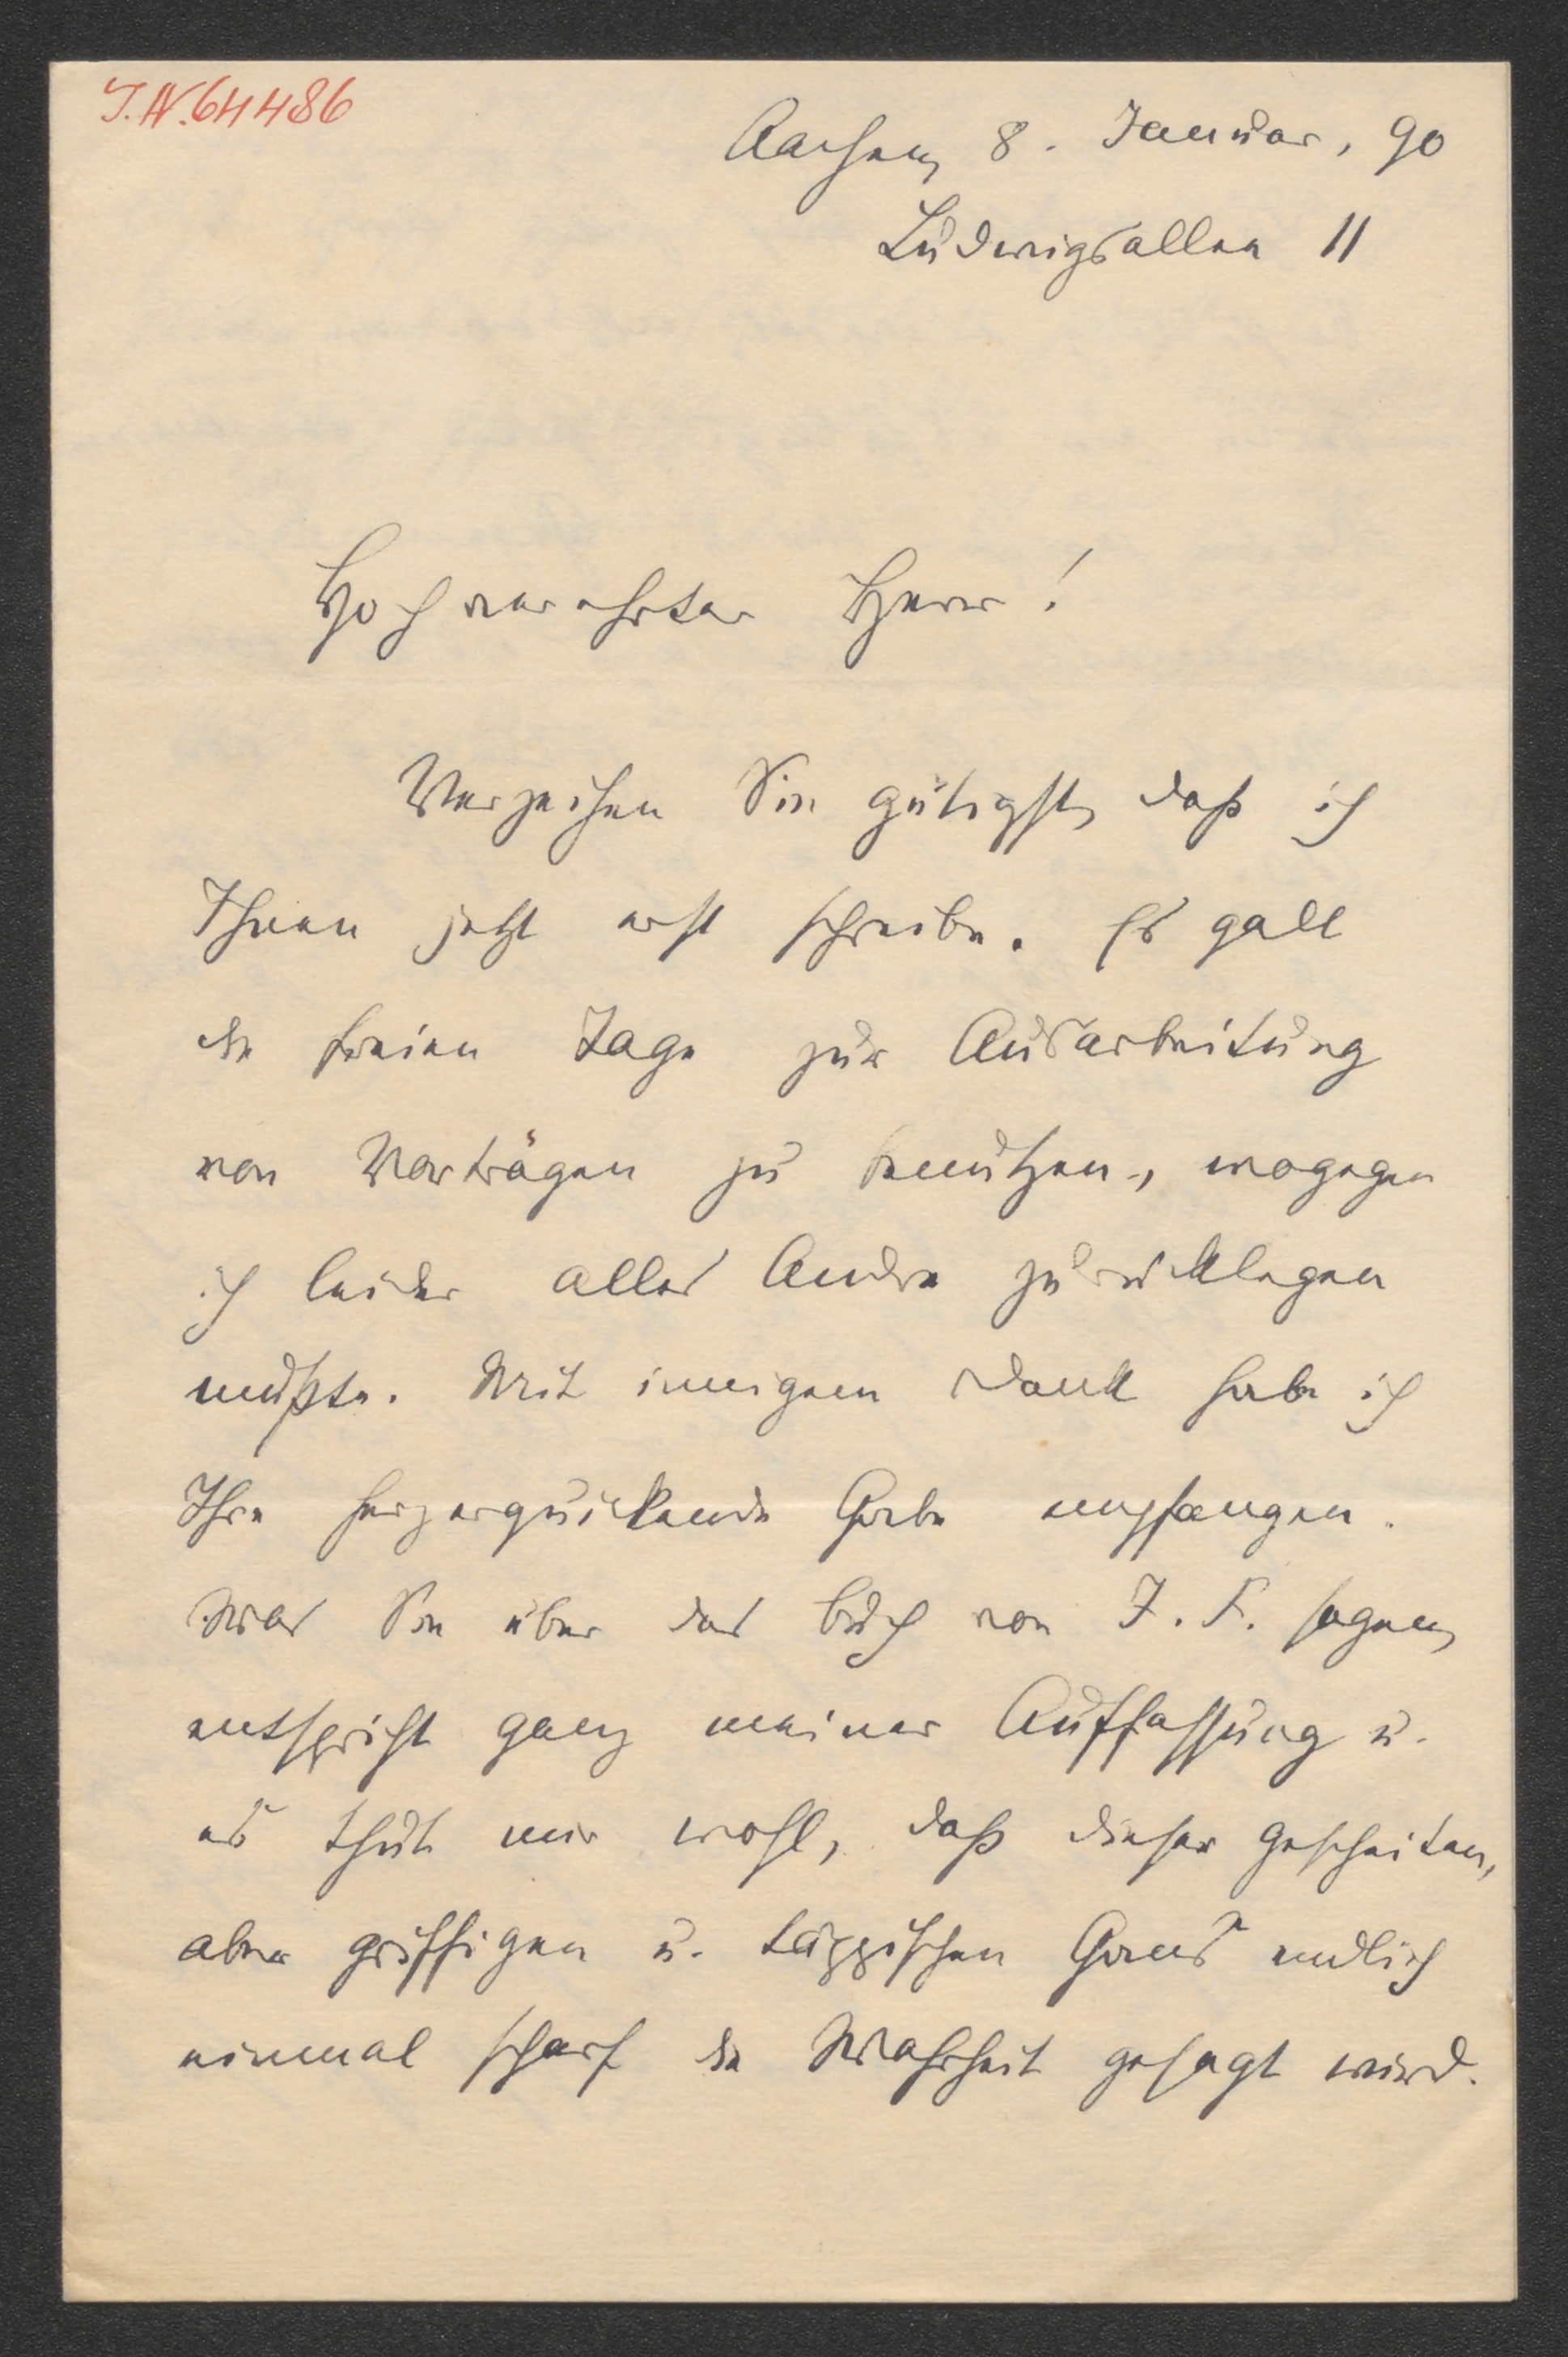 J.N. 64486
Aachen, 8. Januar, 90
Ludwigsallee 11
Hochverehrter Herr!
Verzeihen Sie gütigst, daß ich
Ihnen jetzt erst schreibe. Es galt
die freien Tage zur Ausarbeitung
von Vorträgen zu benutzen, wogegen
ich leider alles Andre zurücklegen
mußte. Mit innigem Dank habe ich
Ihre herzerquickende Gabe empfangen.
Was Sie über das Buch von J. F. sagen,
entspricht ganz meiner Auffassung u.
es thut mir wohl, daß dieser gescheiten,
aber griffigen u. täppischen Gans endlich
einmal scharf die Wahrheit gesagt wird.